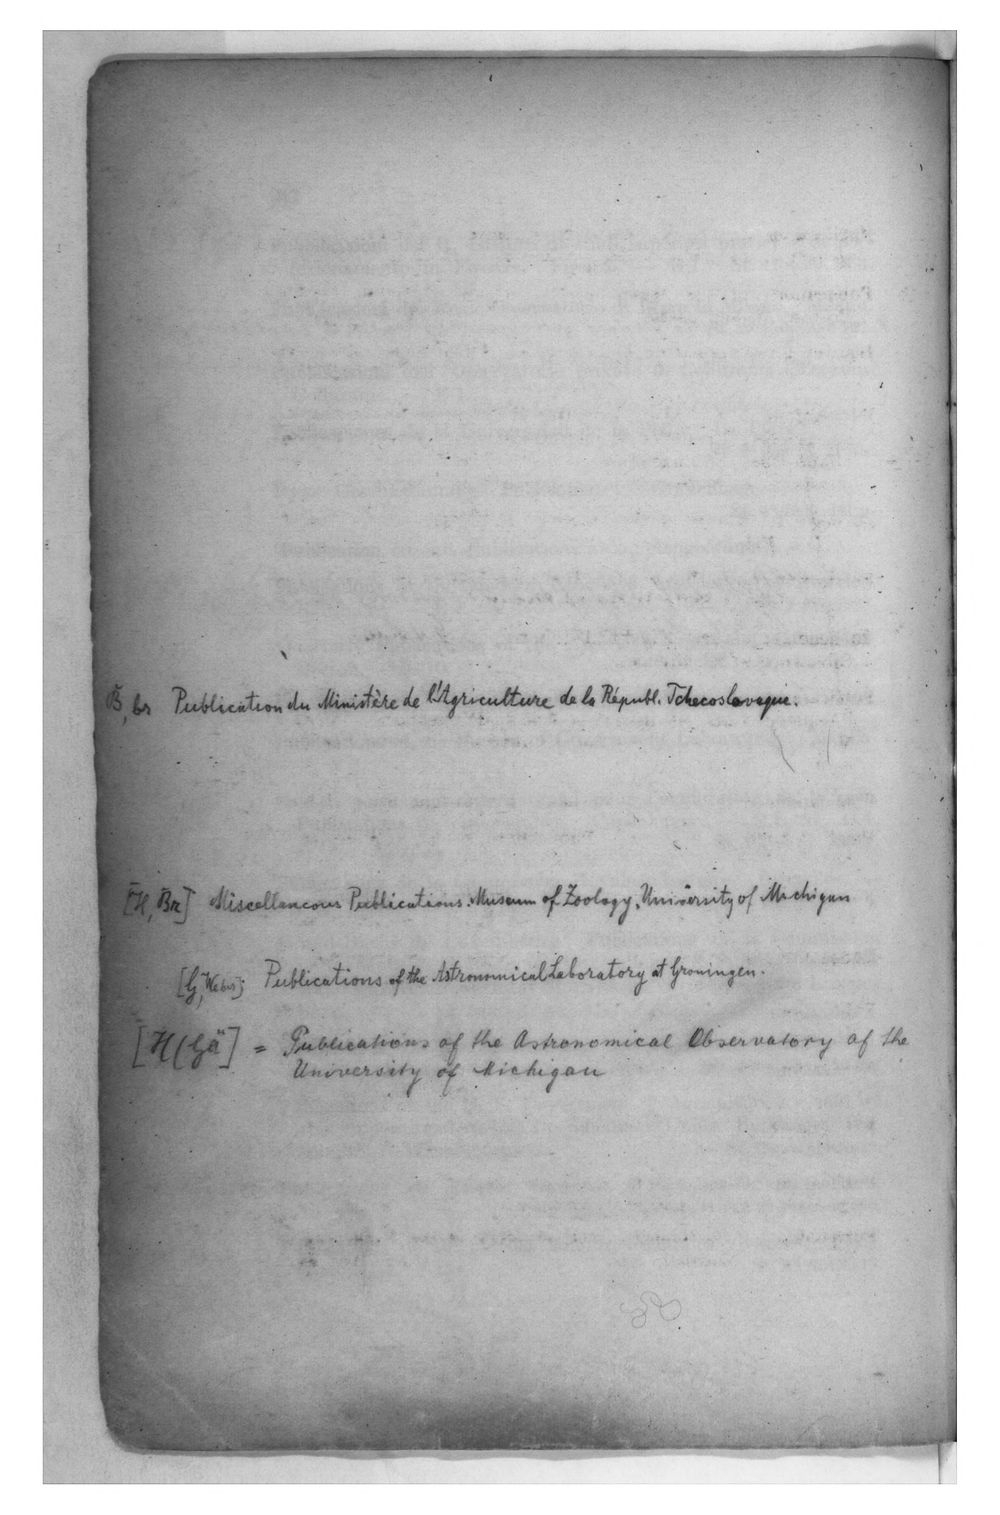 B, br Publication du Ministère de l'Agriculture de la Républ. Tchecoslovaque.
[H, Br] Miscellaneous Publications. Museum of Zoology, University of Michigan
[G, Webs]. Publications of the Astronomical Laboratory at Groningen.
[H(Gä] = Publications of the Astronomical Observatory of the
University of Michigan